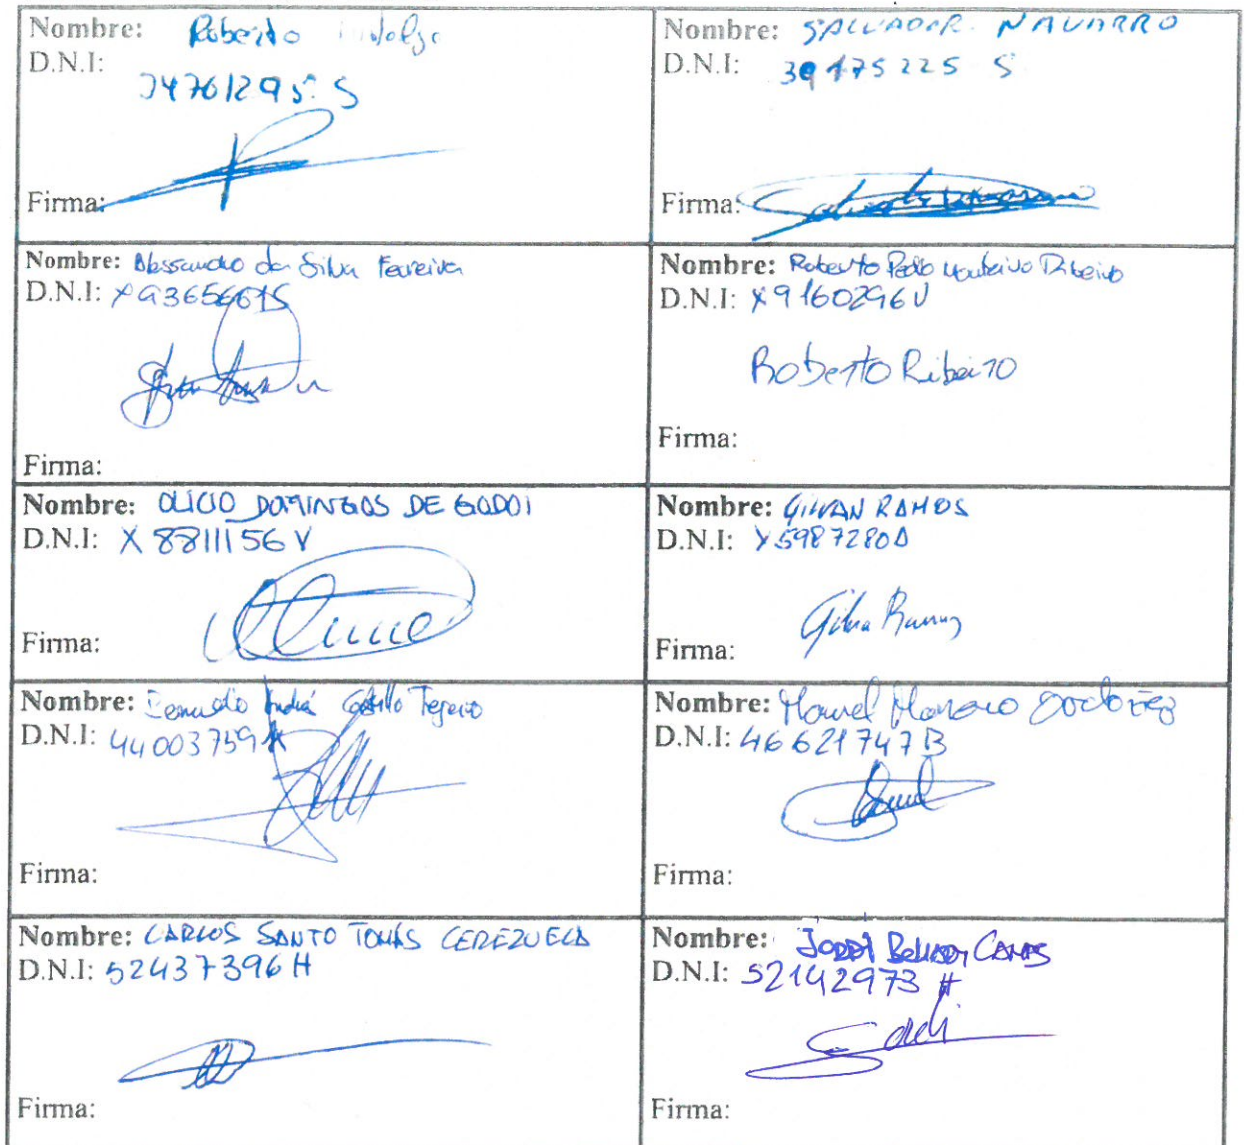 Nombre: Roberto
D.N.I:
34761295 S
Firma:
Nombre: SALVADOR. NAVARRO
D.N.I: 39175225 S
Firma:
Nombre: Alessandro da Silva Ferreira
D.N.I:
Firma:
Nombre: Roberto Pedro Monteiro Ribeiro
D.N.I: X9160296V
Roberto Ribeiro
Firma:
Nombre: OLICIO DOMINGOS DE GODOI
D.N.I: X 8811156 V
Firma:
Nombre: GILVAN RAMOS
D.N.I: Y5987280
Firma:
Nombre: Castillo Tejero
D.N.I: 44003759
Firma:
Nombre: Manuel
D.N.I: 46621747B
Firma:
Nombre: CARLOS SANTO TOMÁS CEREZUELA
D.N.I: 52437396 H
Firma:
Nombre: JORDI
D.N.I: 52142973 H
Jordi
Firma: